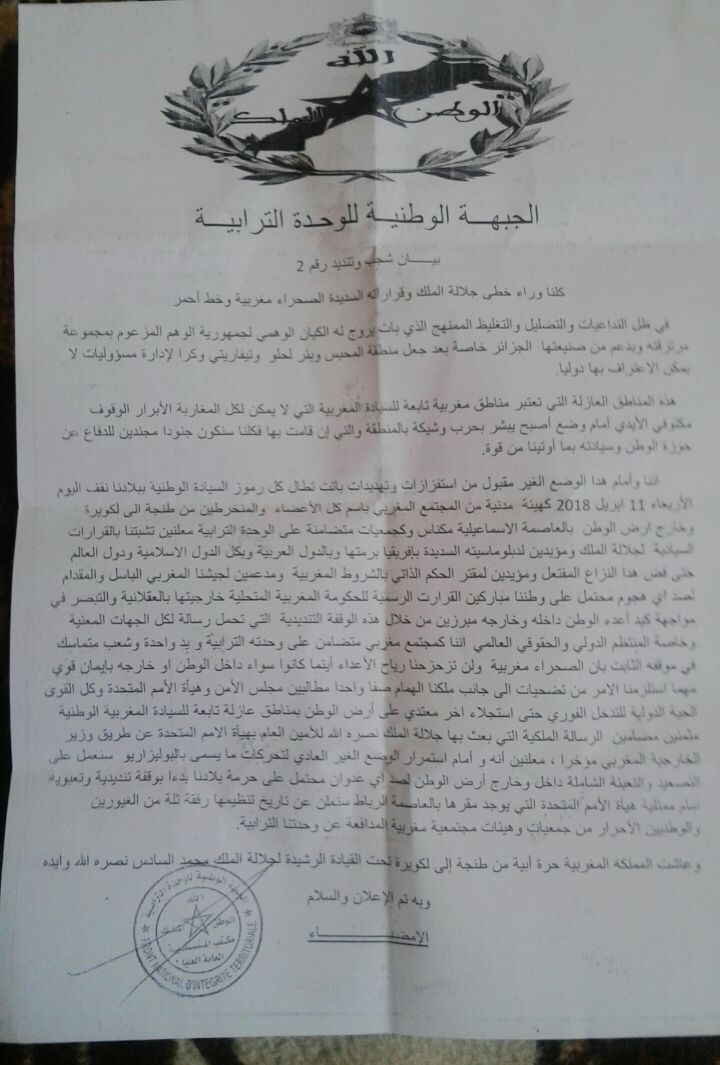 الله
الوطن الملك
الجبهة الوطنية للوحدة الترابية
بيان شجب وتنديد رقم 2
كلنا وراء خطى جلالة الملك وقراراته السديدة الصحراء مغربية وخط أحمر
في ظل التداعيات والتضليل والتغليظ الممنهج الذي بات يروج له الكيان الوهمي لجمهورية الوهم المزعوم بمجموعة
مرتزقته وبدعم من صنيعتها الجزائر خاصة بعد جعل منطقة المحبس وبئر لحلو وتيفاريتي وكرا لإدارة مسؤوليات لا
يمكن الاعتراف بها دوليا.
هذه المناطق العازلة التي تعتبر مناطق مغربية تابعة للسيادة المغربية التي لا يمكن لكل المغاربة الأبرار الوقوف
مكتوفي الأيدي أمام وضع أصبح يبشر بحرب وشيكة بالمنطقة والتي إن قامت بها فكلنا سنكون جنودا مجندين للدفاع عن
حوزة الوطن وسيادته بما أوتينا من قوة.
اننا وأمام هذا الوضع الغير مقبول من استفزازات وتهديدات باتت تطال كل رموز السيادة الوطنية ببلادنا نقف اليوم
الأربعاء 11 ابريل 2018 كهيئة مدنية من المجتمع المغربي باسم كل الأعضاء والمنخرطين من طنجة الى لكويرة
وخارج ارض الوطن بالعاصمة الاسماعيلية مكناس وكجمعيات متضامنة على الوحدة الترابية معلنين تشبتنا بالقرارات
السيادية لجلالة الملك ومؤيدين لدبلوماسيته السديدة بإفريقيا برمتها وبالدول العربية وبكل الدول الاسلامية ودول العالم
حتى فض هدا النزاع المفتعل ومؤيدين لمقتر الحكم الذاتي بالشروط المغربية ومدعمين لجيشنا المغربي الباسل والمقدام
لصد اي هجوم محتمل على وطننا مباركين القرارت الرسمية للحكومة المغربية المتحلية خارجيتها بالعقلانية والتبصر في
مواجهة كيد أعده الوطن داخله وخارجه مبرزين من خلال هذه الوقفة التنديدية التي تحمل رسالة لكل الجهات المعنية
وخاصة المنتظم الدولي والحقوقي العالمي اننا كمجتمع مغربي متضامن على وحدته الترابية و يد واحدة وشعب متماسك
في موقفه الثابت بان الصحراء مغربية ولن تزحزحنا رياح الأعداء أينما كانوا سواء داخل الوطن او خارجه بإيمان قوي
مهما استلزمنا الامر من تضحيات الى جانب ملكنا الهمام صفا واحدا مطالبين مجلس الأمن وهيأة الأمم المتحدة وكل القوى
الحية الدولية للتدخل الفوري حتى استجلاء اخر معتدي على أرض الوطن بمناطق عازلة تابعة للسيادة المغربية الوطنية
مثمنين مضامين الرسالة الملكية التي بعث بها جلالة الملك نصره الله للأمين العام بهيأة الامم المتحدة عن طريق وزير
الخارجية المغربي مؤخرا ، معلنين أنه و أمام استمرار الوضع الغير العادي لتحركات ما يسمى بالبوليزاريو سنعمل على
التصعيد والتعبئة الشاملة داخل وخارج أرض الوطن لصد أي عدوان محتمل على حرمة بلادنا بدءا بوقفة تنديدية وتعبوية
امام ممثلية هيأة الأمم المتحدة التي يوجد مقرها بالعاصمة الرباط سنعلن عن تاريخ تنظيمها رفقة ثلة من الغيورين
والوطنيين الأحرار من جمعيات وهيئات مجتمعية مغربية المدافعة عن وحدتنا الترابية.
وعاشت المملكة المغربية حرة أبية من طنجة إلى لكويرة تحت القيادة الرشيدة لجلالة الملك محمد السادس نصره الله وايده
وبه تم الإعلان والسلام
الإمضاء
الجبهة الوطنية للوحدة الترابية
الله
الوطن الملك
العامة العليا
FRONT NATIONAL D'INTEGRITE TERRITORIALE